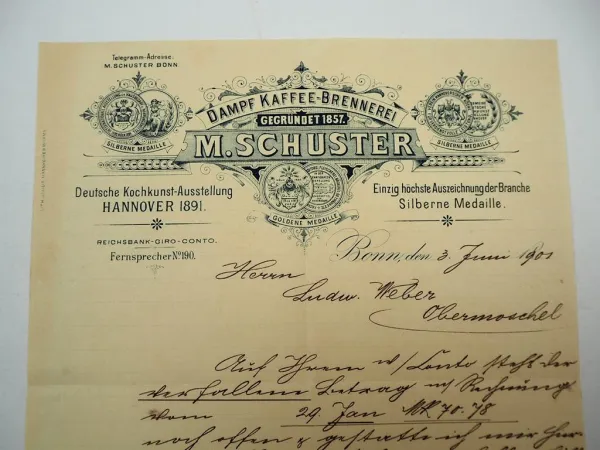 Telegramm-Adresse:
M. SCHUSTER BONN
DAMPF KAFFEE-BRENNEREI
GEGRÜNDET 1857.
M. SCHUSTER
SILBERNE MEDAILLE
SILBERNE MEDAILLE
GOLDENE MEDAILLE
Deutsche Kochkunst-Ausstellung
HANNOVER 1891.
Einzig höchste Auszeichnung der Branche
Silberne Medaille.
REICHSBANK-GIRO-CONTO.
Fernsprecher No 190.
Bonn, den 3. Juni 1901
Herrn
Ludw. Weber
Obermoschel
Auf Ihrem w/ Conto steht der
verfallene Betrag m/ Rechnung
vom 29 Jan Mk 70.78
noch offen & gestatte ich mir hier